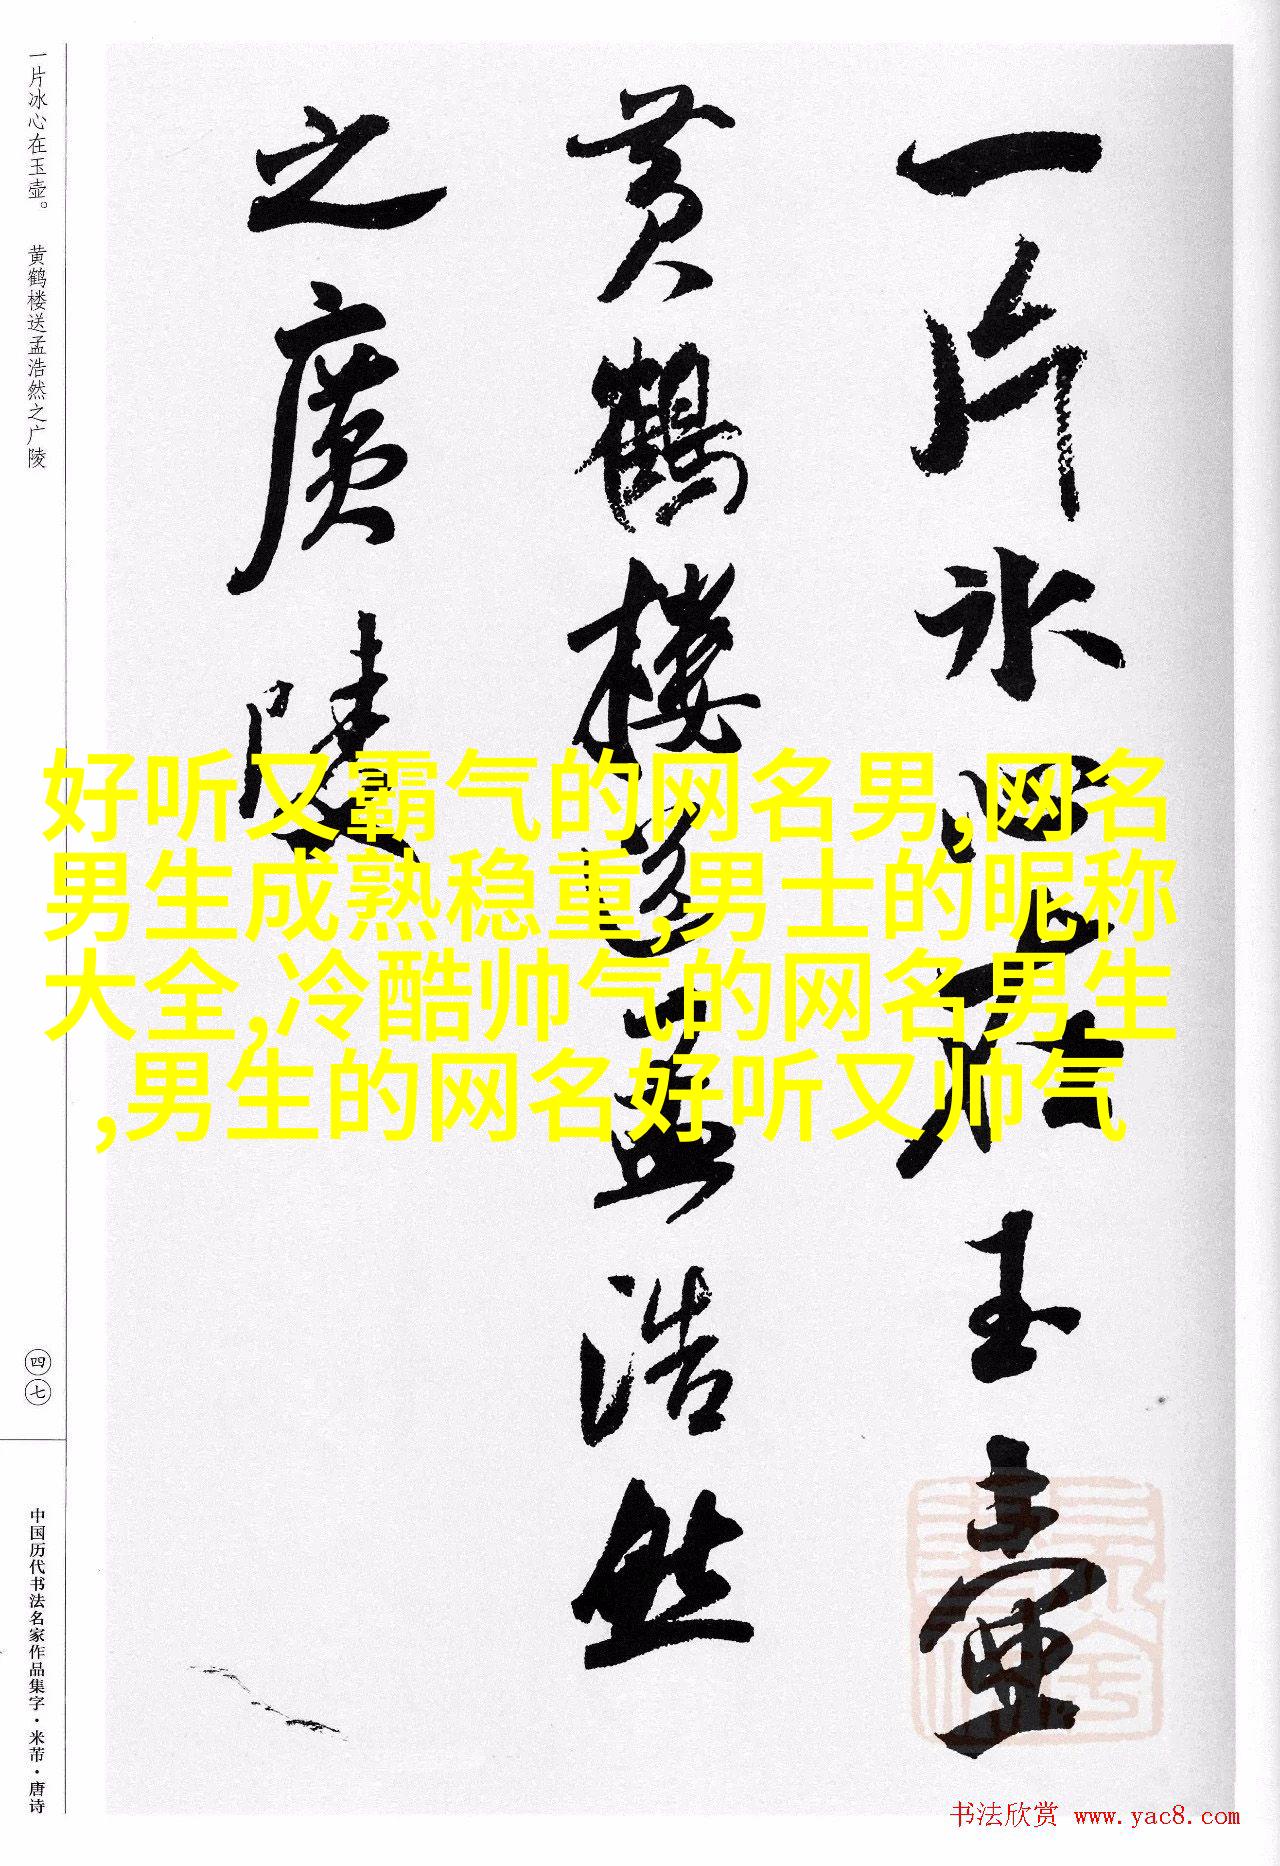 一片冰心在玉壶
黄鹤楼送孟浩然
之廣陵
一片冰心在玉壶。 黄鹤楼送孟浩然之广陵
四七
中国历代书法名家作品集字·米芾·唐诗
好听又霸气的网名男,网名
男生成熟稳重,男士的昵称
大全,冷酷帅气的网名男生
,男生的网名好听又帅气
书法欣赏 www.yac8.com